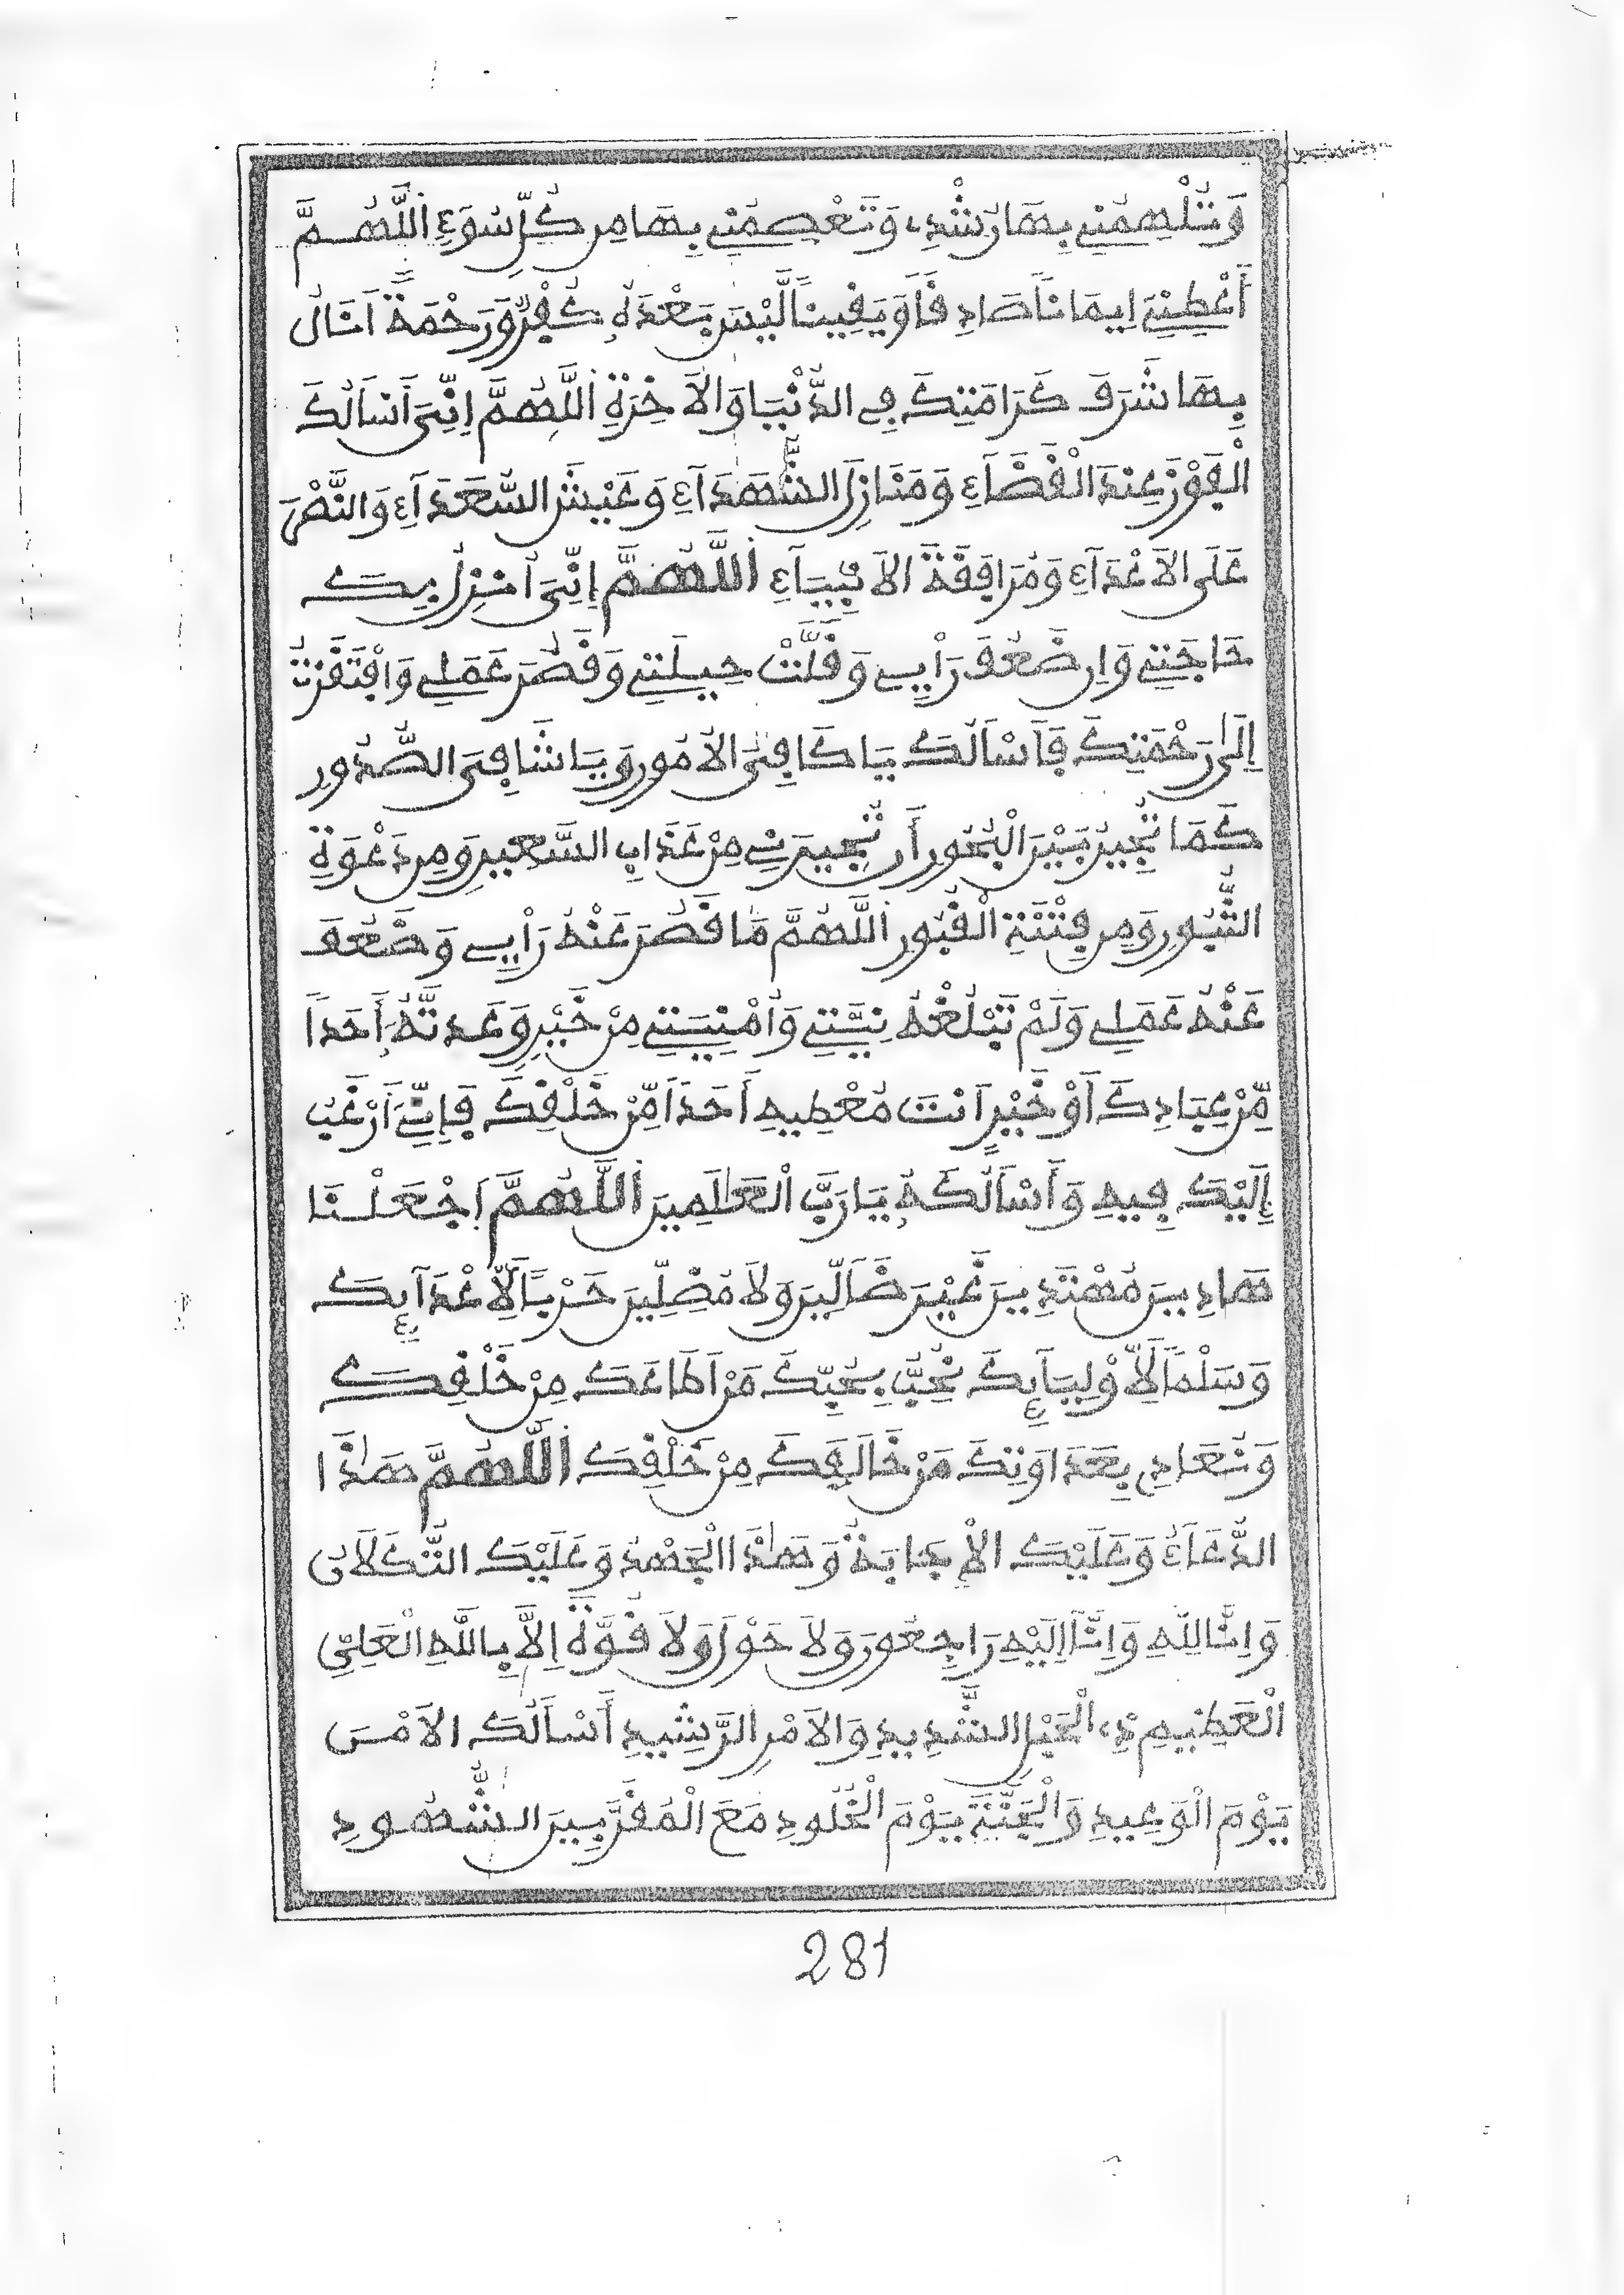 وَتُلْهِمُنِے بِهَا رُشْدِے وَتَعْصِمُنِے بِهَا مِن كُلِّ سُوٓءٍ اَللَّهُمَّ
أَعْطِنِےٓ إِيمَاناً صَادِقاً وَيَقِيناً لَّيْسَ بَعْدَهُ كُفْرٌ وَرَحْمَةً اَنَالُ
بِهَا شَرَفَ كَرَامَتِكَ فِے الدُّنْيَا وَالاَخِرَةِ اَللَّهُمَّ إِنِّےَ أَسْاَلُكَ
الْفَوْزَ عِندَ الْقَضَآءِ وَمَنَازِلَ الشُّهَدَآءِ وَعَيْشَ السُّعَدَآءِ وَالنَّصْرَ
عَلَى الاَعْدَآءِ وَمُرَافَقَةَ الاَنۢبِيَآءِ اَللَّهُمَّ إِنِّےَ أُنزِلُ بِكَ
حَاجَتِے وَإِن ضَعُفَ رَأْيِے وَقَلَّتْ حِيلَتِے وَقَصُرَ عَمَلِے وَافْتَقَرْتُ
إِلَىٰ رَحْمَتِكَ فَأَسْاَلُكَ يَا كَافِىَ الاُمُورِ وَيَا شَافِىَ الصُّدُورِ
كَمَا تُجِيرُ بَيْنَ الْبُحُورِ أَن تُجِيرَنِے مِنْ عَذَابِ السَّعِيرِ وَمِن دَعْوَةِ
الثُّبُورِ وَمِن فِتْنَةِ الْقُبُورِ اَللَّهُمَّ مَا قَصُرَ عَنْهُ رَأْيِے وَضَعُفَ
عَنْهُ عَمَلِے وَلَمْ تَبْلُغْهُ نِيَّتِے وَأُمْنِيَتِے مِنْ خَيْرٍ وَعَدتَّهُۥٓ أَحَداً
مِّنْ عِبَادِكَ أَوْ خَيْرٍ اَنتَ مُعْطِيهِ أَحَداً مِّنْ خَلْقِكَ فَإِنِّےَ أَرْغَبُ
إِلَيْكَ فِيهِ وَأَسْاَلُكَهُ يَا رَبَّ الْعَٰلَمِينَ اَللَّهُمَّ اَجْعَلْنَا
هَادِينَ مُهْتَدِينَ غَيْرَ ضَآلِّينَ وَلاَ مُضِلِّينَ حَرْباً لِّأَعْدَآئِكَ
وَسَلْماً لِّأَوْلِيَآئِكَ نُحِبُّ بِحُبِّكَ مَنْ اَطَاعَكَ مِنْ خَلْقِكَ
وَنُعَادِے بِعَدَاوَتِكَ مَنْ خَالَفَكَ مِنْ خَلْقِكَ اَللَّهُمَّ هَٰذَا
الدُّعَآءُ وَعَلَيْكَ الإِجَابَةُ وَهَٰذَا الْجَهْدُ وَعَلَيْكَ التُّكَلاَنُ
وَإِنَّا لِلَّهِ وَإِنَّآ إِلَيْهِ رَاجِعُونَ وَلاَ حَوْلَ وَلاَ قُوَّةَ إِلاَّ بِاللَّهِ الْعَلِىِّ
الْعَظِيمِ ذِے الْحَبْلِ الشَّدِيدِ وَالاَمْرِ الرَّشِيدِ أَسْاَلُكَ الاَمْنَ
يَوْمَ الْوَعِيدِ وَالْجَنَّةَ يَوْمَ الْخُلُودِ مَعَ الْمُقَرَّبِينَ الشُّهُودِ
281